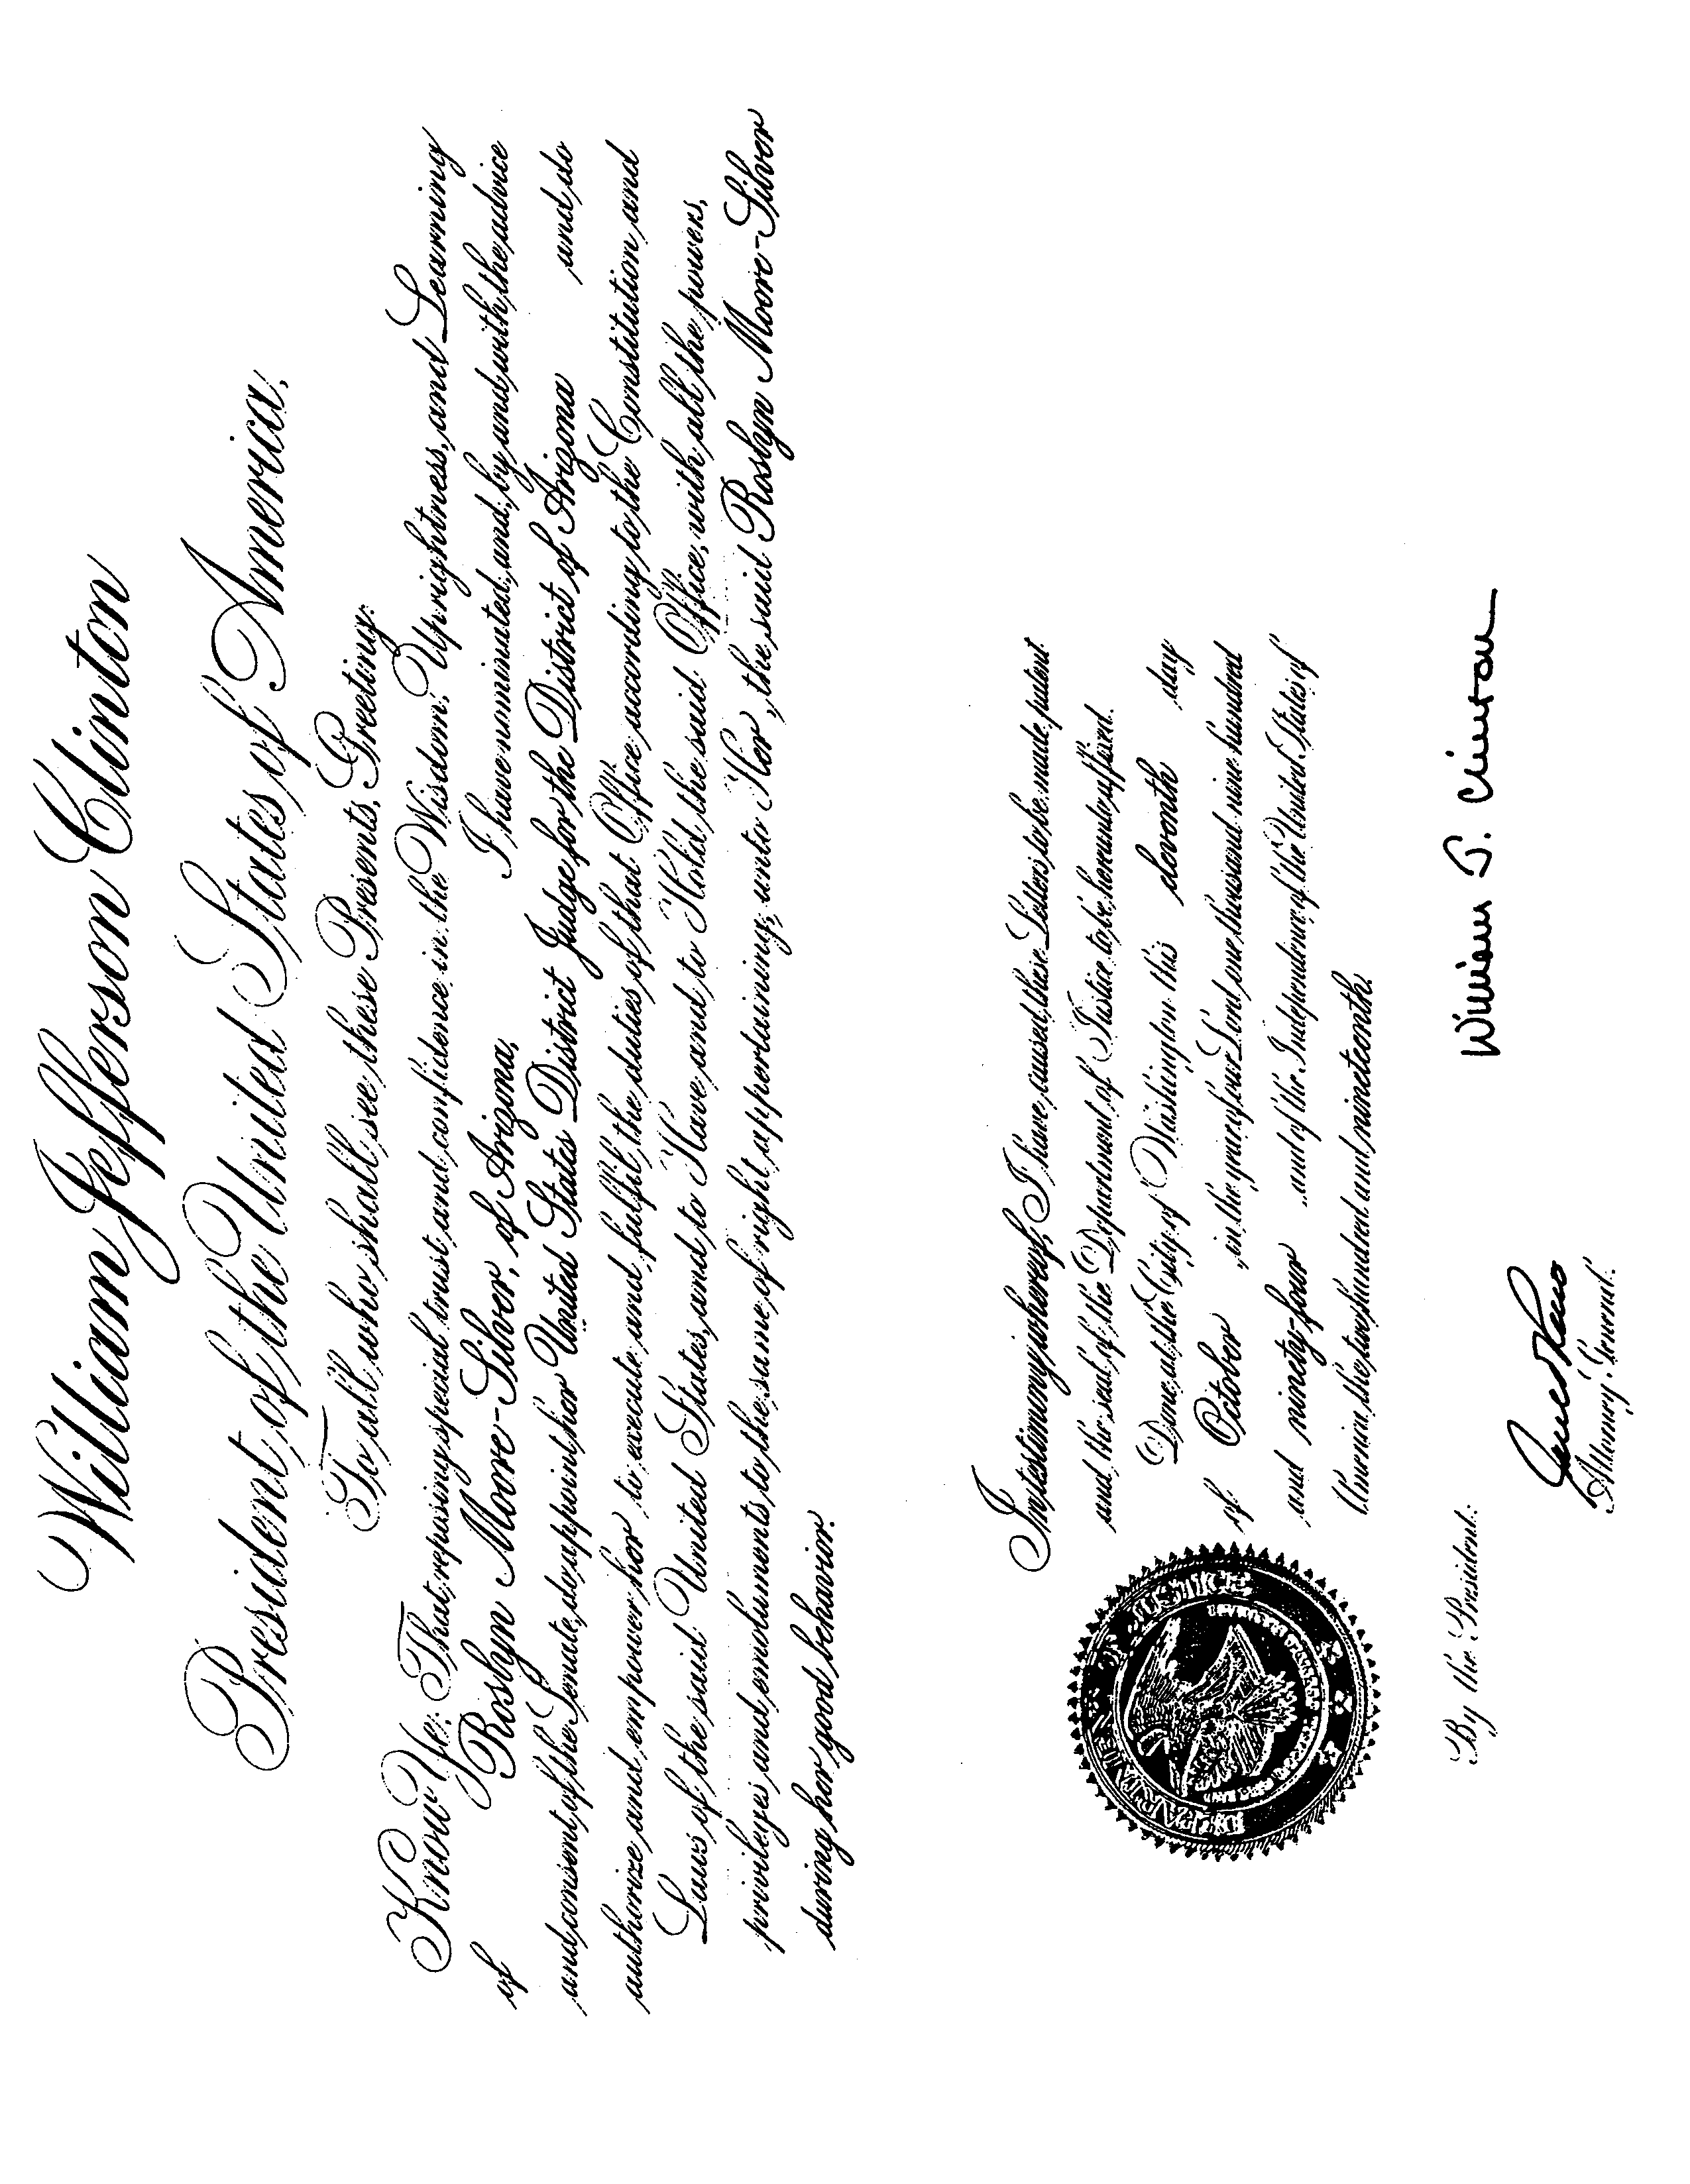 William Jefferson Clinton
President of the United States of America,
To all who shall see these Presents, Greeting:
Know Ye: That, reposing special trust and confidence in the Wisdom, Uprightness, and Learning
of Roslyn Moore-Silver, of Arizona, I have nominated, and, by and with the advice
and consent of the Senate, do appoint her United States District Judge for the District of Arizona and do
authorize and empower her to execute and fulfil the duties of that Office according to the Constitution and
Laws of the said United States, and to Have and to Hold the said Office, with all the powers,
privileges and emoluments to the same of right appertaining, unto Her, the said Roslyn Moore-Silver
during her good behavior.
In testimony whereof, I have caused these Letters to be made patent
and the seal of the Department of Justice to be hereunto affixed.
Done at the City of Washington this eleventh day
of October in the year of our Lord one thousand nine hundred
and ninety-four and of the Independence of the United States of
America the two hundred and nineteenth.
DEPARTMENT OF JUSTICE
William J. Clinton
By the President:
Janet Reno
Attorney General.